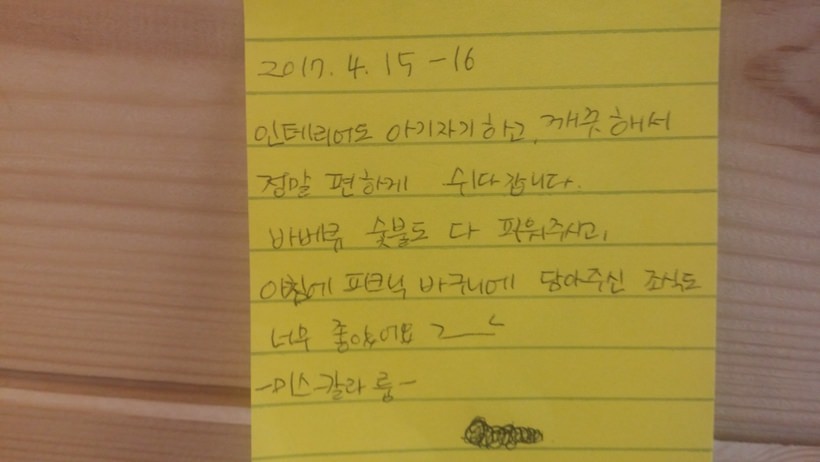 2017. 4. 15 -16
인테리어도 아기자기하고, 깨끗해서
정말 편하게 쉬다갑니다.
바베큐 숯불도 다 피워주시고,
아침에 피크닉 바구니에 담아주신 조식도
너무 좋았어요
-미스칼라룸-